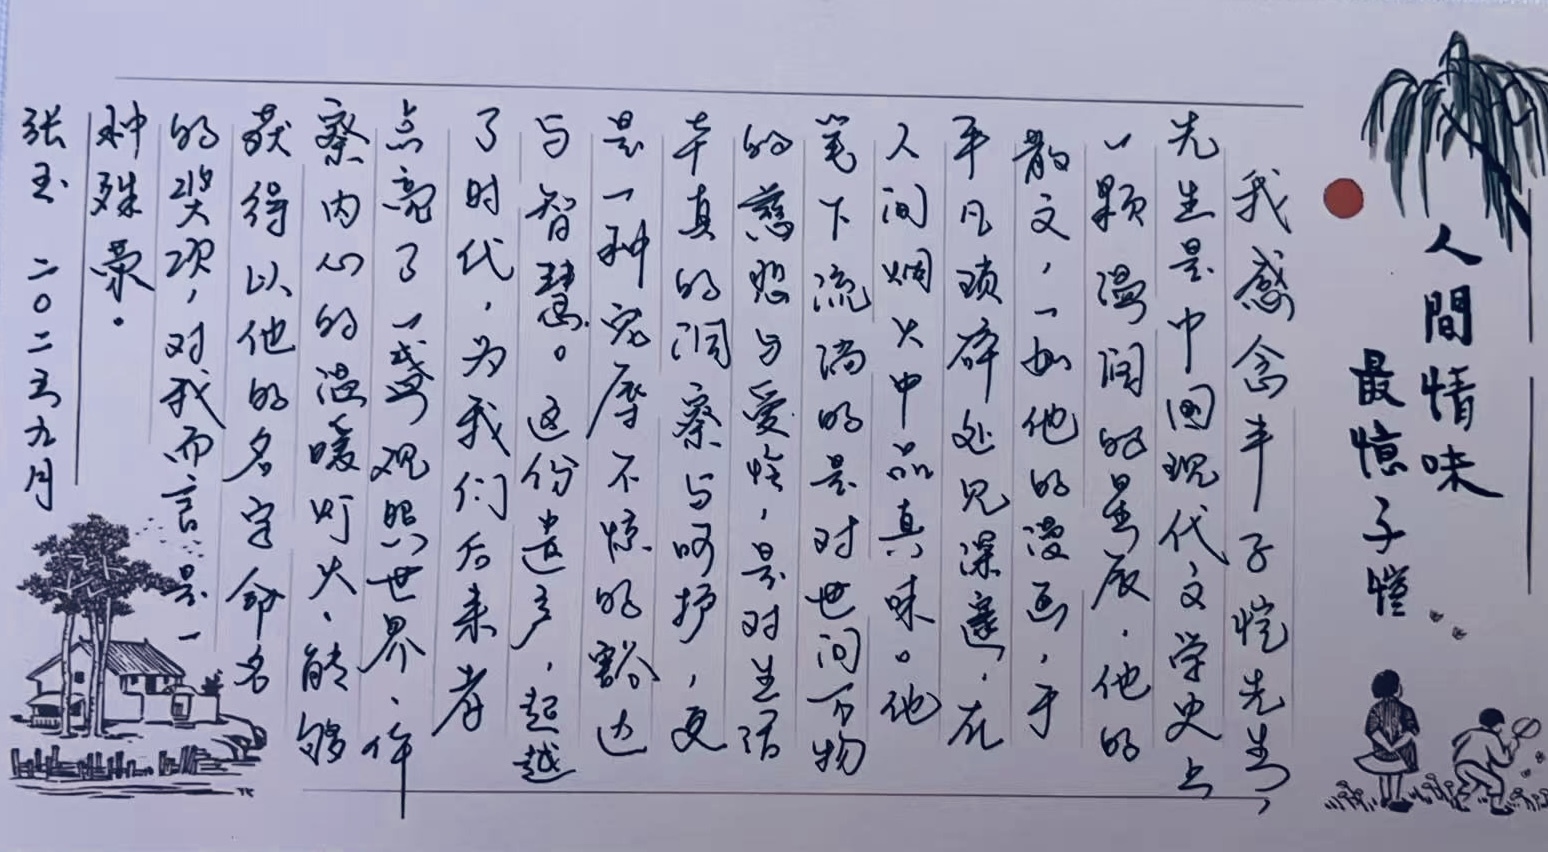 人間情味
最憶子愷
我感念丰子恺先生，
先生是中国现代文学史上
一颗温润的星辰．他的
散文，一如他的漫画，于
平凡琐碎处见深邃，在
人间烟火中品真味。他
笔下流淌的是对世间万物
的慈悲与爱怜，是对生活
本真的洞察与呵护，更
是一种宠辱不惊的豁达
与智慧。这份遗产，超越
了时代，为我们后来者
点亮了一盏观照世界、体
察内心的温暖灯火．能够
获得以他的名字命名
的奖项，对我而言，是一
种殊荣．
张玉 二〇二五九月